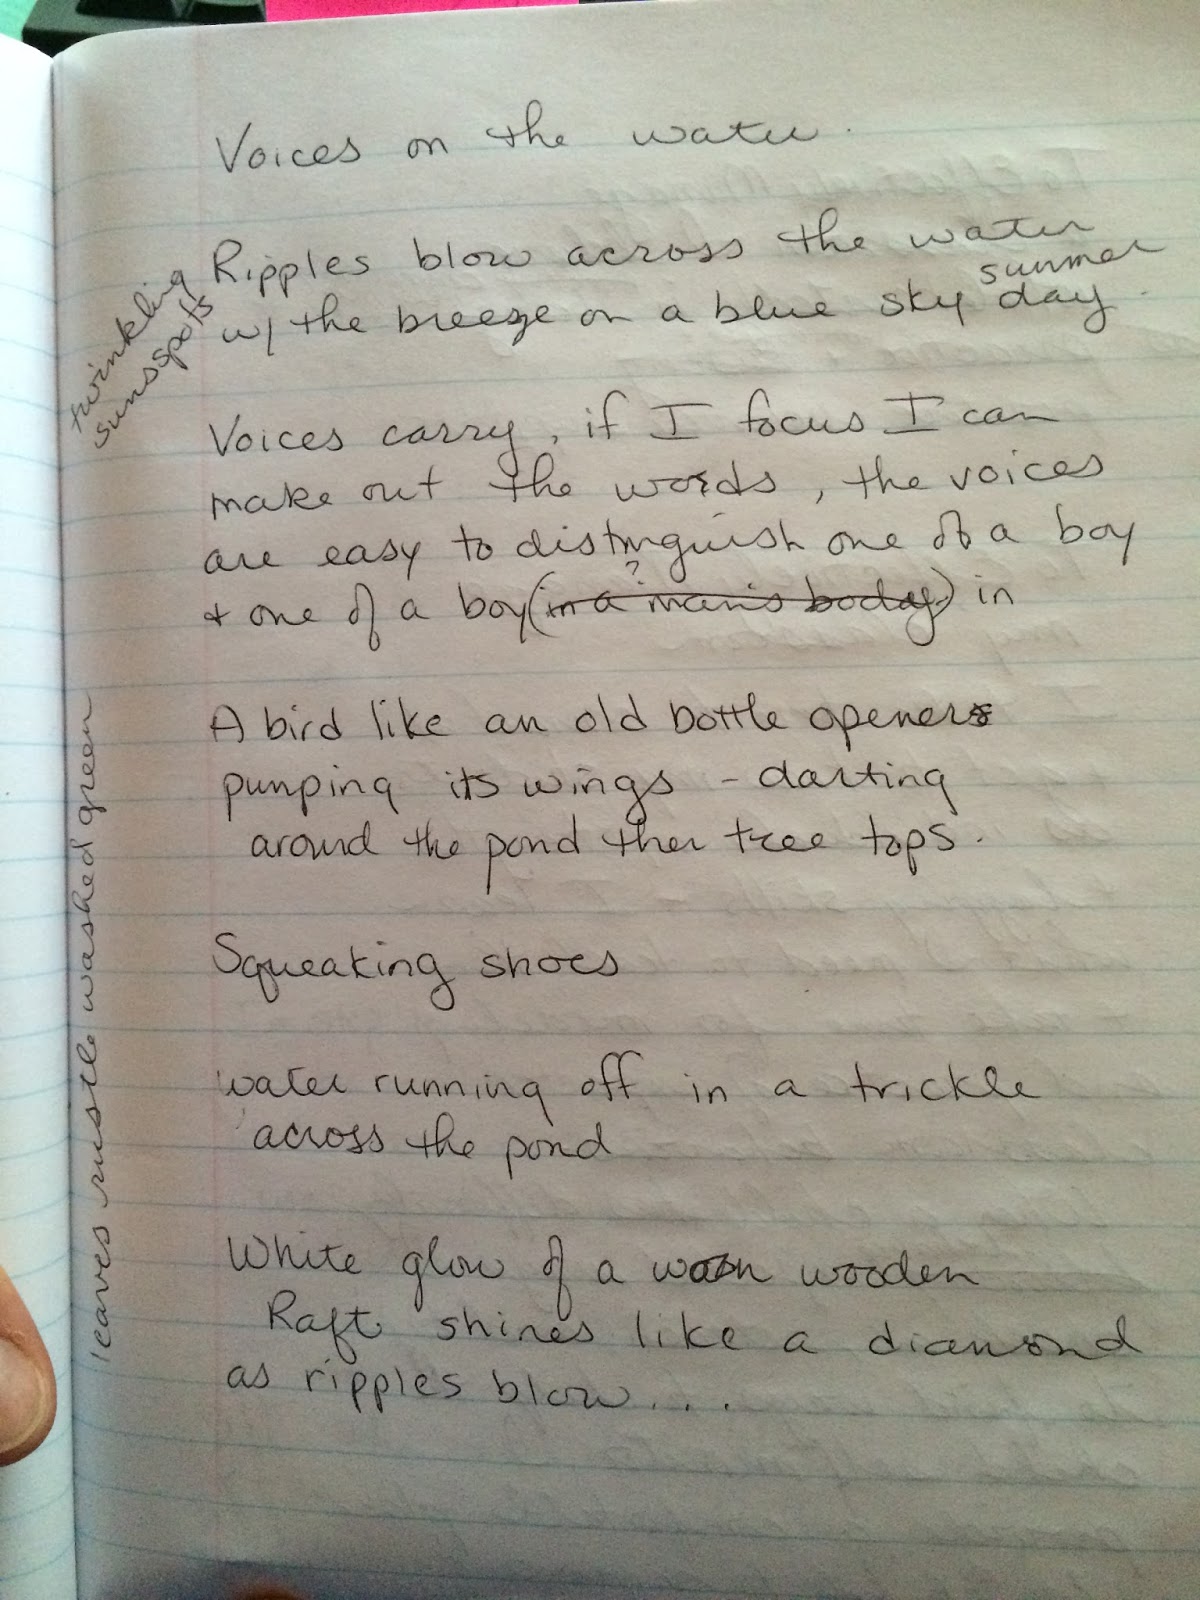 Voices on the water.
Ripples blow across the water
w/ the breeze on a blue sky summer day.
twinkling
sunsspots
Voices carry, if I focus I can
make out the words, the voices
are easy to distinguish one of a boy
+ one of a boy (in a man's body?) in
A bird like an old bottle opener
pumping its wings - darting
around the pond then tree tops.
Squeaking shoes
water running off in a trickle
across the pond
White glow of a worn wooden
Raft shines like a diamond
as ripples blow....
leaves rustle washed green